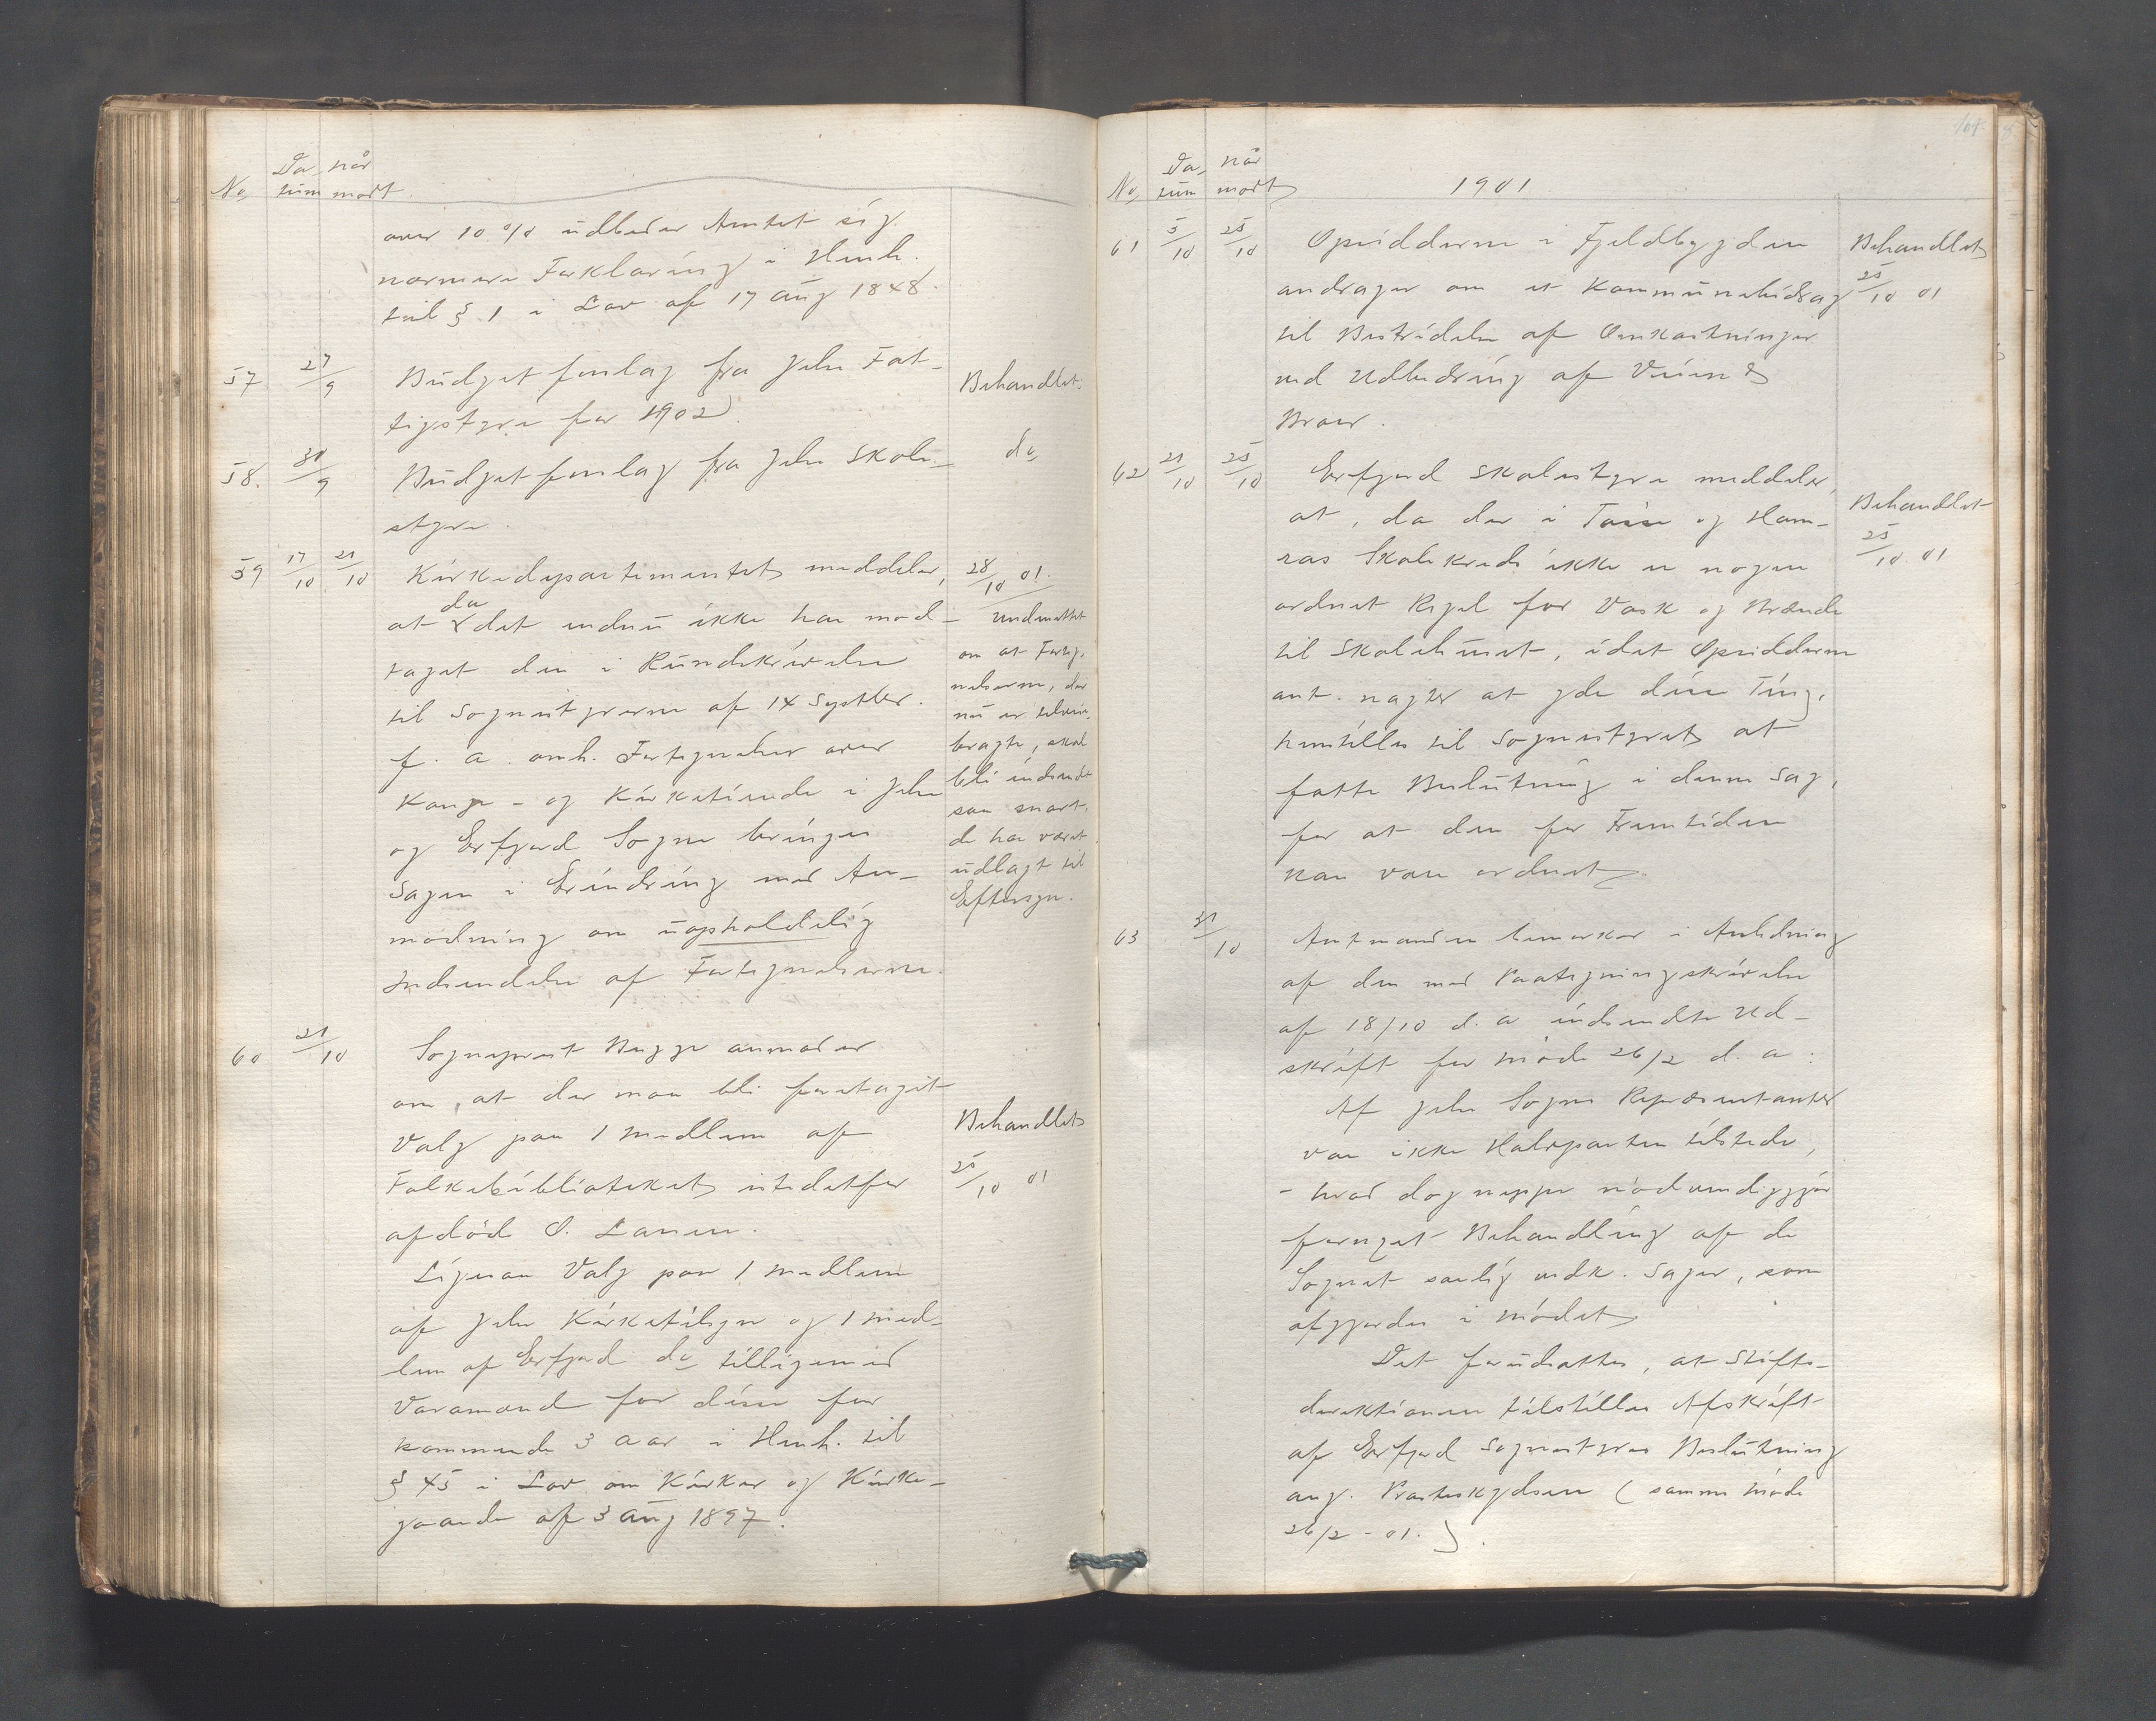 No Da- når
tum modt.
over 10 % udbeder Amtet sig
nærmere Forklaring i Henh.
til § 1 i Lov af 17 Aug 1848.
57 27/9 Budgetforslag fra Jelse Fat-
tigstyre for 1902
Behandlet.
58. 30/9 Budgetforslag fra Jelse Skole-
styre.
do
59 17/10 21/10 Kirkedepartementet meddeler,
at da det endnu ikke har mod-
taget den i Rundskrivelse
til Sognestyrerne af 14 Septber.
f. a. omh. Fortegnelser over
Konge- og Kirketiende i Jelse
og Erfjord Sogne bringer
Sagen i Erindring med An-
modning om uopholdelig
Indsendelse af Fortegnelserne.
28/10 01.
underrettet
om at Forteg-
nelserne, der
nu er tilveie-
bragte, skal
bli indsendt
saa snart
de har været
udlagt til
Eftersyn.
60 21/10 Sogneprest Bugge anmoder
om, at der maa bli foretaget
Valg paa 1 medlem af
Folkebibliotheket istedetfor
afdöde O. Larsen.
Ligesaa Valg paa 1 medlem
af Jelse Kirketilsyn og 1 med-
lem af Erfjord do tilligemed
Varamænd for disse for
kommende 3 Aar i Henh. til
§ 45 i Lov om Kirker og Kirke-
gaarde af 3 Aug 1897.
Behandlet
25/10 01
No Da- når
tum modt
1901
61 5/10 25/10 Opsidderne i Fjeldbygden
andrager om et Kommunebidrag
til Bestridelse af Omkostninger
ved Udbedring af Veien &
Broer.
Behandlet
25/10 01
62 21/10 25/10 Erfjord Skolestyre meddeler,
at, da der i Tøsse og Ham-
ras Skolekreds ikke er nogen
ordnet Regel for Vask og Brænde
til Skolehuset, idet Opsidderne
ant. nægter at yde disse Ting,
henstilles til Sognestyret at
fatte Beslutning i denne Sag,
for at den for Fremtiden
kan være ordnet.
Behandlet
25/10 01
63 31/10 Amtmanden bemærker i Anledning
af den med Paategningsskrivelse
af 18/10 d. a indsendte Ud-
skrift for möde 26/2 d. a:
Af Jelse Sogns Repræsentanter
var ikke Halvparten tilstede,
- hvad dog neppe nödvendiggjör
fornyet Behandling af de
Sognet særlig vedk. Sager, som
afgjordes i mödet.
Det forudsættes, at Stifts-
direktionen tilstilles Afskrift
af Erfjord Sognestyres Beslutning
ang. Presteskydsen (samme möde
26/2 - 01.)